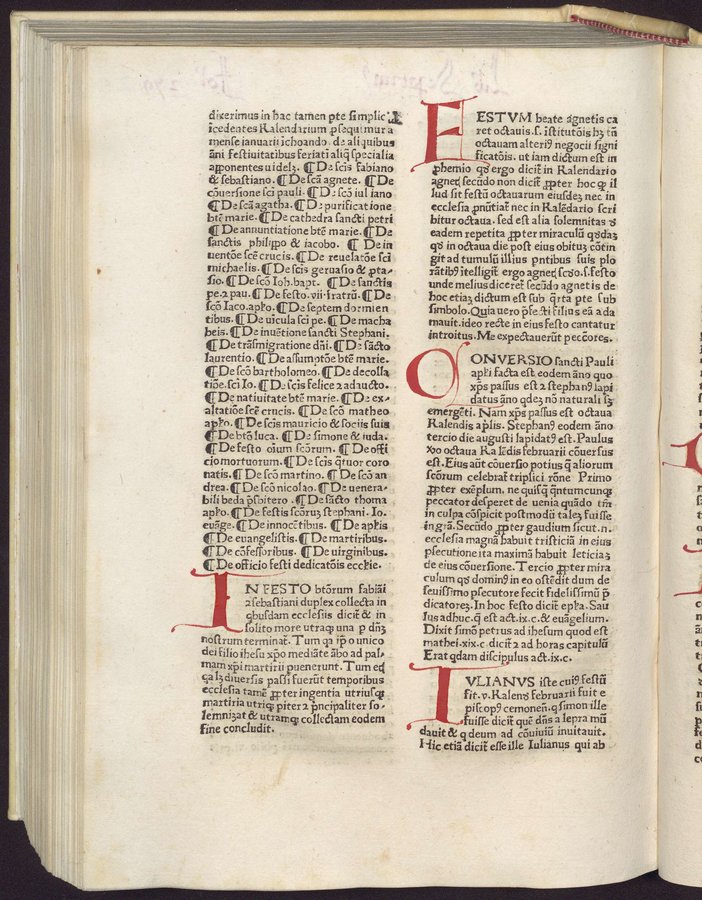 dixerimus in hac tamen pte simplic̄
īcedētes Kalendarium ꝓsequimur a
mense ianuarii īchoando. de aliquibus
āni festiuitatibus feriati aliq̄ specialia
apponentes uidelꝫ. ¶ De scīs fabiano
& sebastiano. ¶ De scā agnete. ¶ De
cōuersione sci pauli. ¶ De scō iuliano
¶ De scā agatha. ¶ De purificatione
btē marie. ¶ De cathedra sancti petri
¶ De annuntiatione btē marie. ¶ De
sanctis philippo & iacobo. ¶ De in
uentōe scē crucis. ¶ De reuelatōe sci
michaelis. ¶ De scīs geruasio & ꝓta-
sio. ¶ De scō Ioh. bapt. ¶ De sanctis
pe. ⁊ pau. ¶ De festo .vii. fratrū. ¶ De
scō Iaco. apło. ¶ De septem dormien
tibus. ¶ De uīcula sci pe. ¶ De macha
beis. ¶ De inuētione sancti Stephani.
¶ De trāsmigratione dñi. ¶ De sācto
laurentio. ¶ De assumptōe btē marie.
¶ De scō bartholomeo. ¶ De decolla
tiōe. sci Io. ¶ De scīs felice ⁊ adaucto.
¶ De natiuitate btē marie. ¶ De ex-
altatiōe scē crucis. ¶ De scō matheo
apło. ¶ De scīs mauricio & sociis suis
¶ De btō luca. ¶ De simone & iuda.
¶ De festo oīum scōrum. ¶ De offi
cio mortuorum. ¶ De scīs q̄tuor coro
natis. ¶ De scō martino. ¶ De scō an
drea. ¶ De scō nicolao. ¶ De uenera-
bili beda p̄sbitero. ¶ De sācto thoma
apło. ¶ De festis scōrꝫ stephani. Io.
euāge. ¶ De innocētibus. ¶ De apłis
¶ De euangelistis. ¶ De martiribus.
¶ De cōfessoribus. ¶ De uirginibus.
¶ De officio festi dedicatōis eccłie.
IN FESTO btōrum fabiāi
⁊ sebastiani duplex collecta in
qbusdam ecclesiis dicit̄ & in
solito more utraqꝫ una p dn̄ꝫ
nostrum terminat̄. Tum qa ip̄i o unico
dei filio ihesu xp̄o mediāte ābo ad pal-
mam xp̄i martirii puenerunt. Tum eq̄
qa lꝫ diuersis passi fuerūt temporibus
ecclesia tamē ꝓpter ingentia utriusqꝫ
martiria utriqꝫ piter ⁊ p̄ncipaliter so-
lemnizat & utramqꝫ collectam eodem
fine concludit.
FESTUM beate agnetis ca
ret octauis .s. istitutōis hꝫ tn̄
octauam alteri⁹ negocii signi
ficatōis. ut iam dictum est in
phemio qđ ergo dicit̄ in Kalendario
agneꝫ secūdo non dicit̄ ꝓpter hoc q̄ il
lud sit festū octauarum eiusdeꝫ nec in
ecclesia ꝓnūtiat̄ nec in Kalēdario scri
bitur octaua. sed est alia solemnitas q̄
eadem repetita ꝓpter miraculū qđdaꝫ
qđ in octaua die post eius obituꝫ cōtin
git ad tumulū illius pntibus suis plo
rātibꝰ itelligit̄ ergo agneꝫ scđo .s. festo
unde melius diceret̄ secūdo agnetis de
hoc etiaꝫ dictum est sub q̄rta pte sub
simbolo. Quia uero p̄fecti filius eā ada
mauit. ideo recte in eius festo cantatur
introitus. Me expectauerūt peccōres.
CONVERSIO sancti Pauli
apłi facta est eodem āno quo
xp̄s passus est ⁊ stephan⁹ lapi
datus āno qdeꝫ nō naturali sꝫ
emergēti. Nam xp̄s passus est octaua
Kalendis aplis. Stephan⁹ eodem āno
tercio die augusti lapidat⁹ est. Paulus
xͦo octaua Kalēdis februarii cōuersus
est. Eius aūt cōuersio potius q̄ aliorum
scōrum celebrat̄ triplici rōne Primo
ꝓpter exēplum. ne quisq̄ q̄ntumcunqꝫ
peccator desperet de uenia quādo tm̄
in culpa cōspicit postmodū taleꝫ fuisse
in grā. Secūdo ꝓpter gaudium sicut .n.
ecclesia magnā habuit tristiciā in eius
psecutione ita maximā habuit leticiaꝫ
de eius cōuersione. Tercio ꝓpter mira
culum qđ domin⁹ in eo ostēdit dum de
seuissimo psecutore fecit fidelissimū p̄
dicatoreꝫ. In hoc festo dicit̄ epła. Sau
lus adhuc. q̄ est act. ix. c. & euāgelium.
Dixit simō petrus ad ihesum quod est
mathei .xix. c. dicit̄ ⁊ ad horas capitulū
Erat qdam discipulus act. ix. c.
IULIANUS iste cui⁹ festū
fit .v. Kalens̄ februarii fuit e
pisc op⁹ cemonen̄. q̄ simon ille
fuisse dicit̄ que dn̄s a lepra mū
dauit & q deum ad cōuiuiū inuitauit.
Hic etiā dicit̄ esse ille Iulianus qui ab